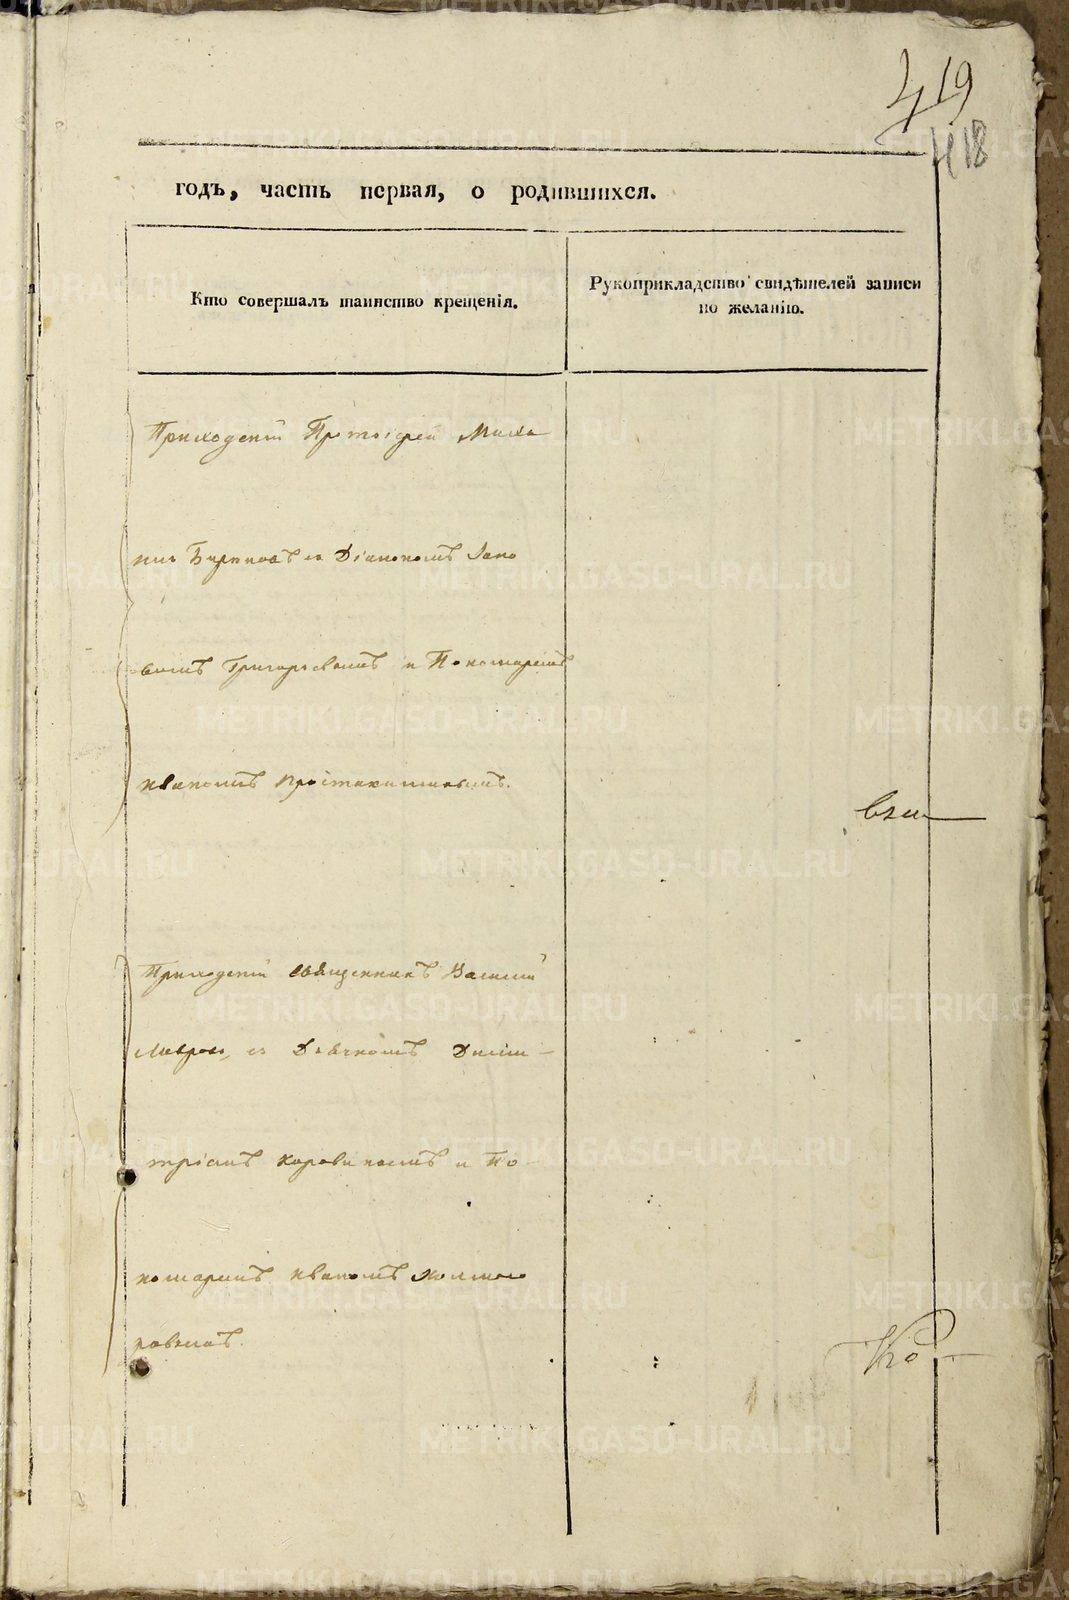 419
418
годъ, часть первая, о родившихся.
Кто совершалъ таинство крещенія.
Рукоприкладство свидѣтелей записи
по желанію.
Приходскій Протоіерей Миха
илъ съ Діакономъ Іако
вомъ Григорьевымъ и Пономаремъ
Иваномъ
Приходскій Священникъ Василій
съ Дьячкомъ Дими-
тріемъ Коровинымъ и По-
номаремъ Иваномъ Холмого
ровымъ.
METRIKI.GASO-URAL.RU